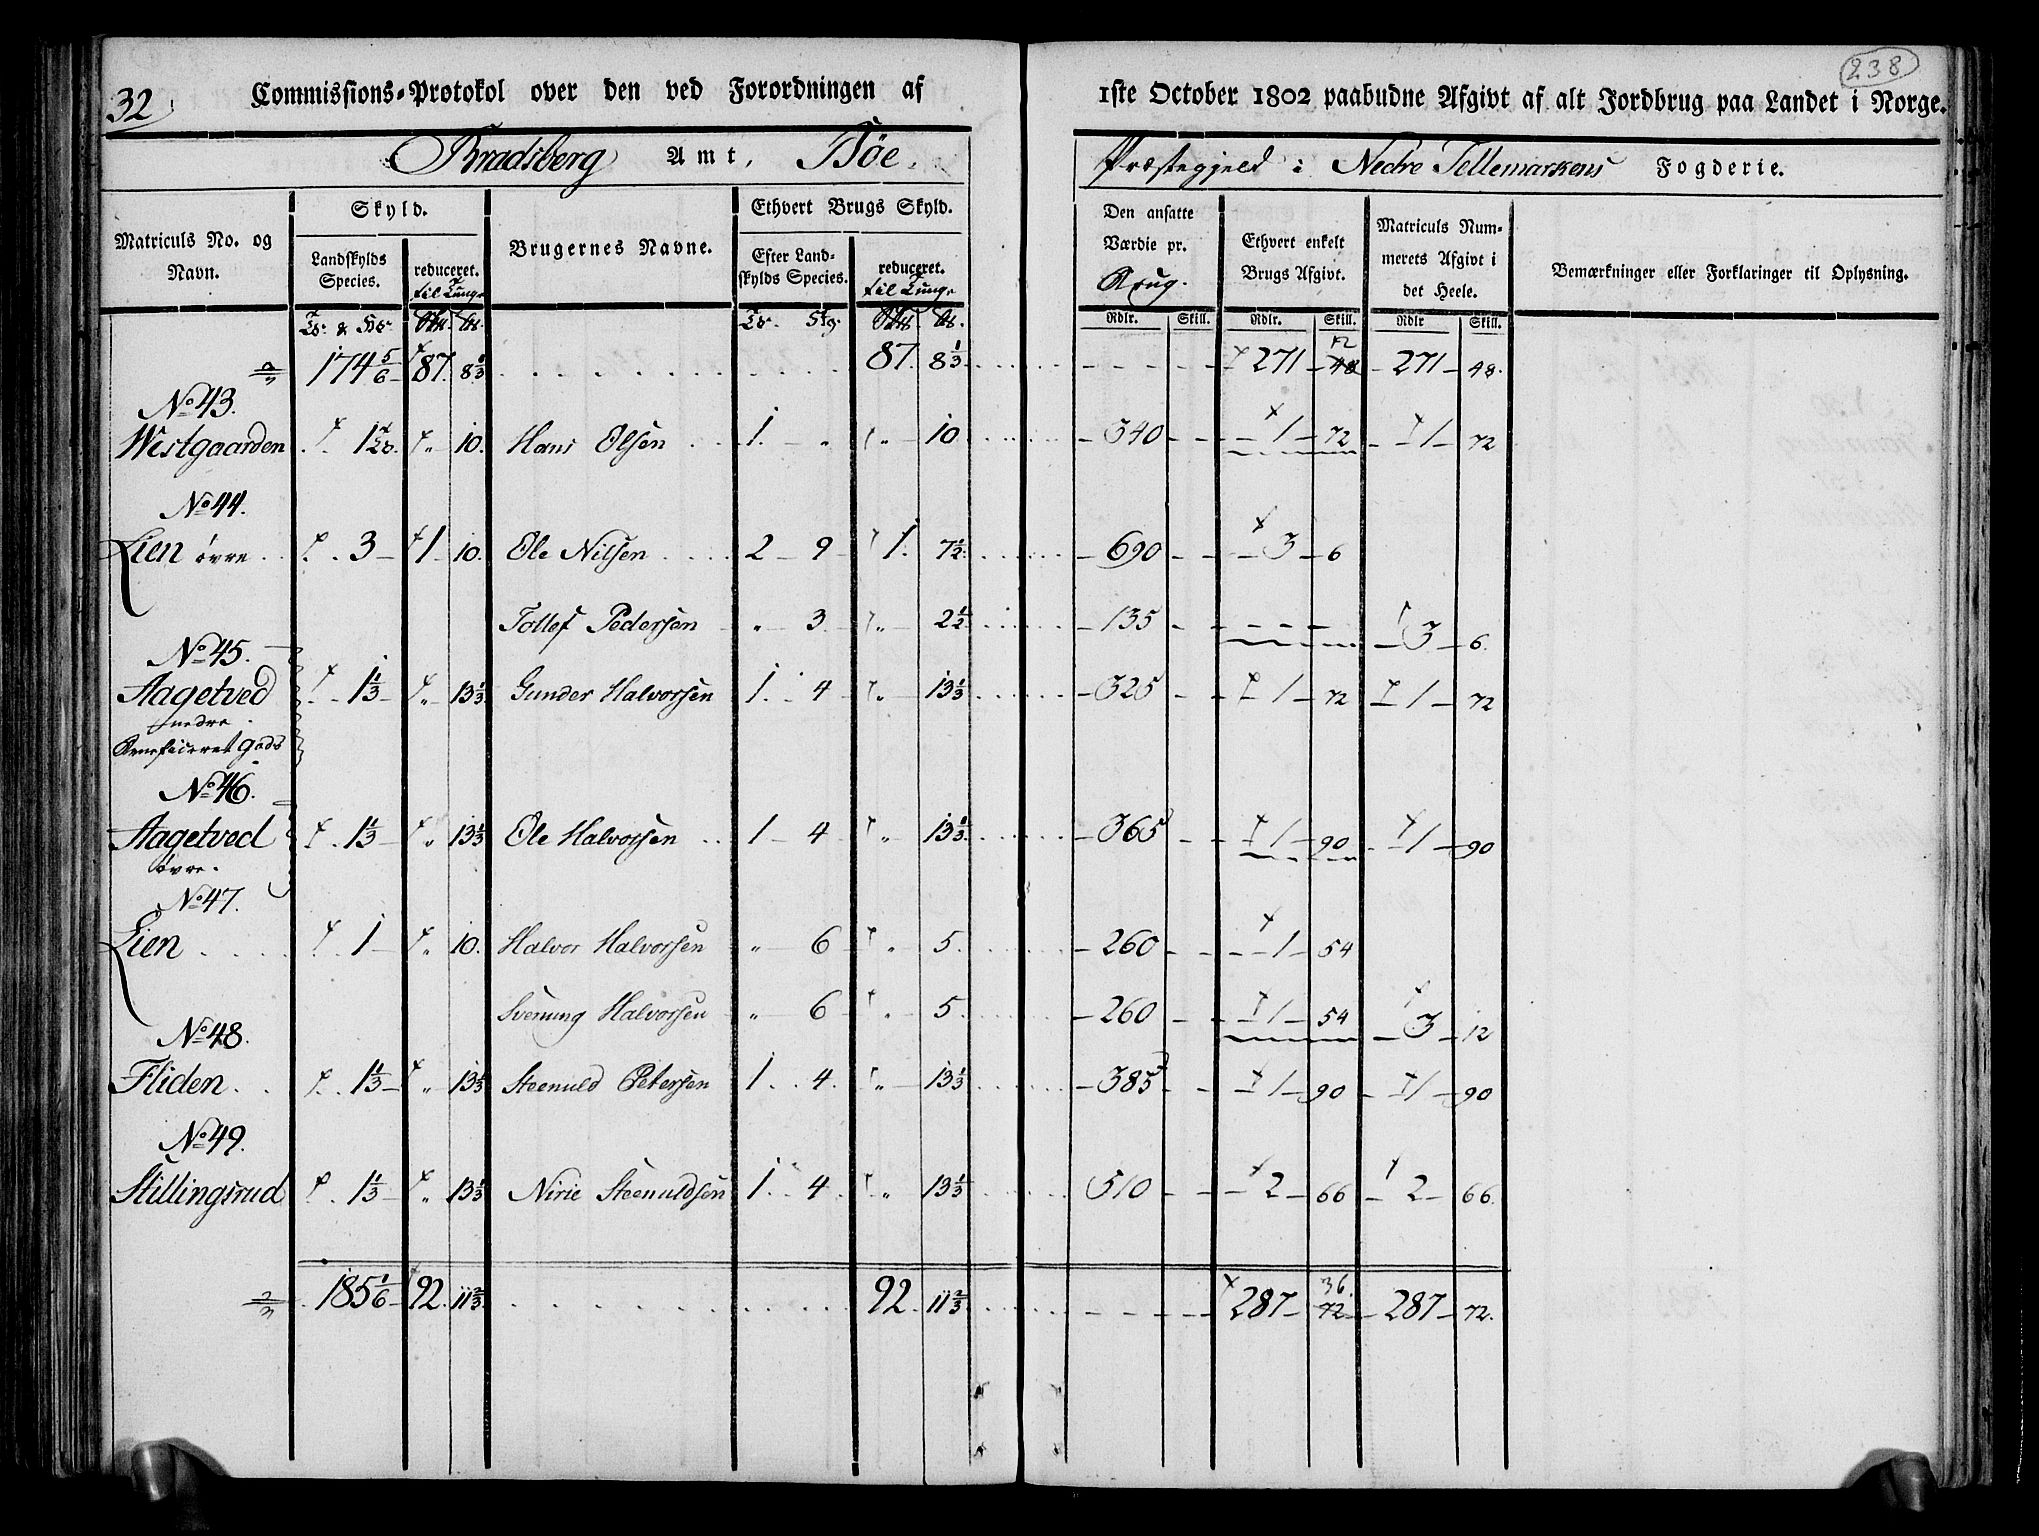 32. Commissions-Protokol over den ved Forordningen af 1ste October 1802 paabudne Afgivt af alt Jordbrug paa Landet i Norge.
238
Bradsberg Amt, Böe Præstegjeld i Nedre Tellemarkens Fogderie.
Matriculs No. og Navn.
Skyld.
Landskylds Species.
reduceret. til Tunge
Brugernes Navne.
Ethvert Brugs Skyld.
Efter Landskylds Species.
reduceret. til Tunge
Den ansatte Værdie pr. Brug.
Ethvert enkelt Brugs Afgivt.
Matriculs Nummerets Afgivt i det Heele.
Bemærkninger eller Forklaringer til Oplysning.
Rdlr. Skill. Rdlr. Skill. Rdlr Skill.
174 5/6 87. 8 1/3 87. 8 1/3 271 12 48 271 48.
No 43.
Westgaarden 1 10. Hans Olsen 1. " " 10 340 1 72 1 72
No 44.
Lien övre 3 1 10. Ole Nilsen 2 9 1. 7 1/2 690 3 6
Tollef Pedersen " 3 " 2 1/2 135 3 6.
No 45.
Aagetved 1 1/3 " 13 1/3 Gunder Halvorsen 1. 4 " 13 1/3 325 1 72 1 72
nedre
Beneficeret Gods
No 46.
Aagetved 1 1/3 " 13 1/3 Ole Halvorsen 1 4 " 13 1/3 365 1 90 1 90
övre.
No 47.
Lien 1 " 10. Halvor Halvorsen " 6 " 5. 260 1 54
Svenung Halvorsen " 6 " 5. 260 1 54 3 12
No 48.
Fliden 1 1/3 " 13 1/3 Steenuld Petersen 1. 4. " 13 1/3 385 1 90 1 90
No 49.
Stillingsrud 1 1/3 " 13 1/3 Nirie Steenuldsen 1. 4. " 13 1/3 510 2 66 2 66.
185 1/6 92. 11 2/3 92. 11 2/3 287 36. 72 287 72.